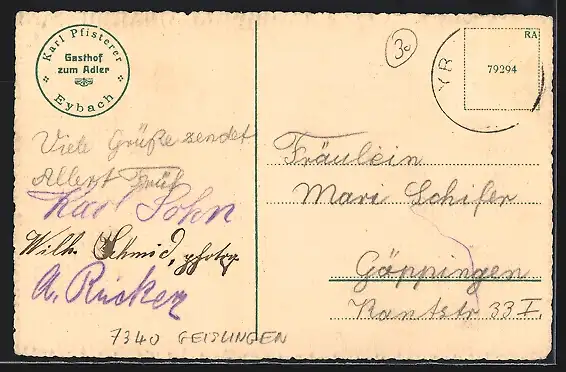 Karl Pfisterer
Gasthof
zum Adler
Eybach
30
YB
RA
79294
Viele Grüße sendet
Albert
Karl Sohn
Wilh. Schmid, photogr.
A. Rücker
7340 GEISLINGEN
Fräulein
Mari Schifer
Göppingen
Kantstr 33 I.